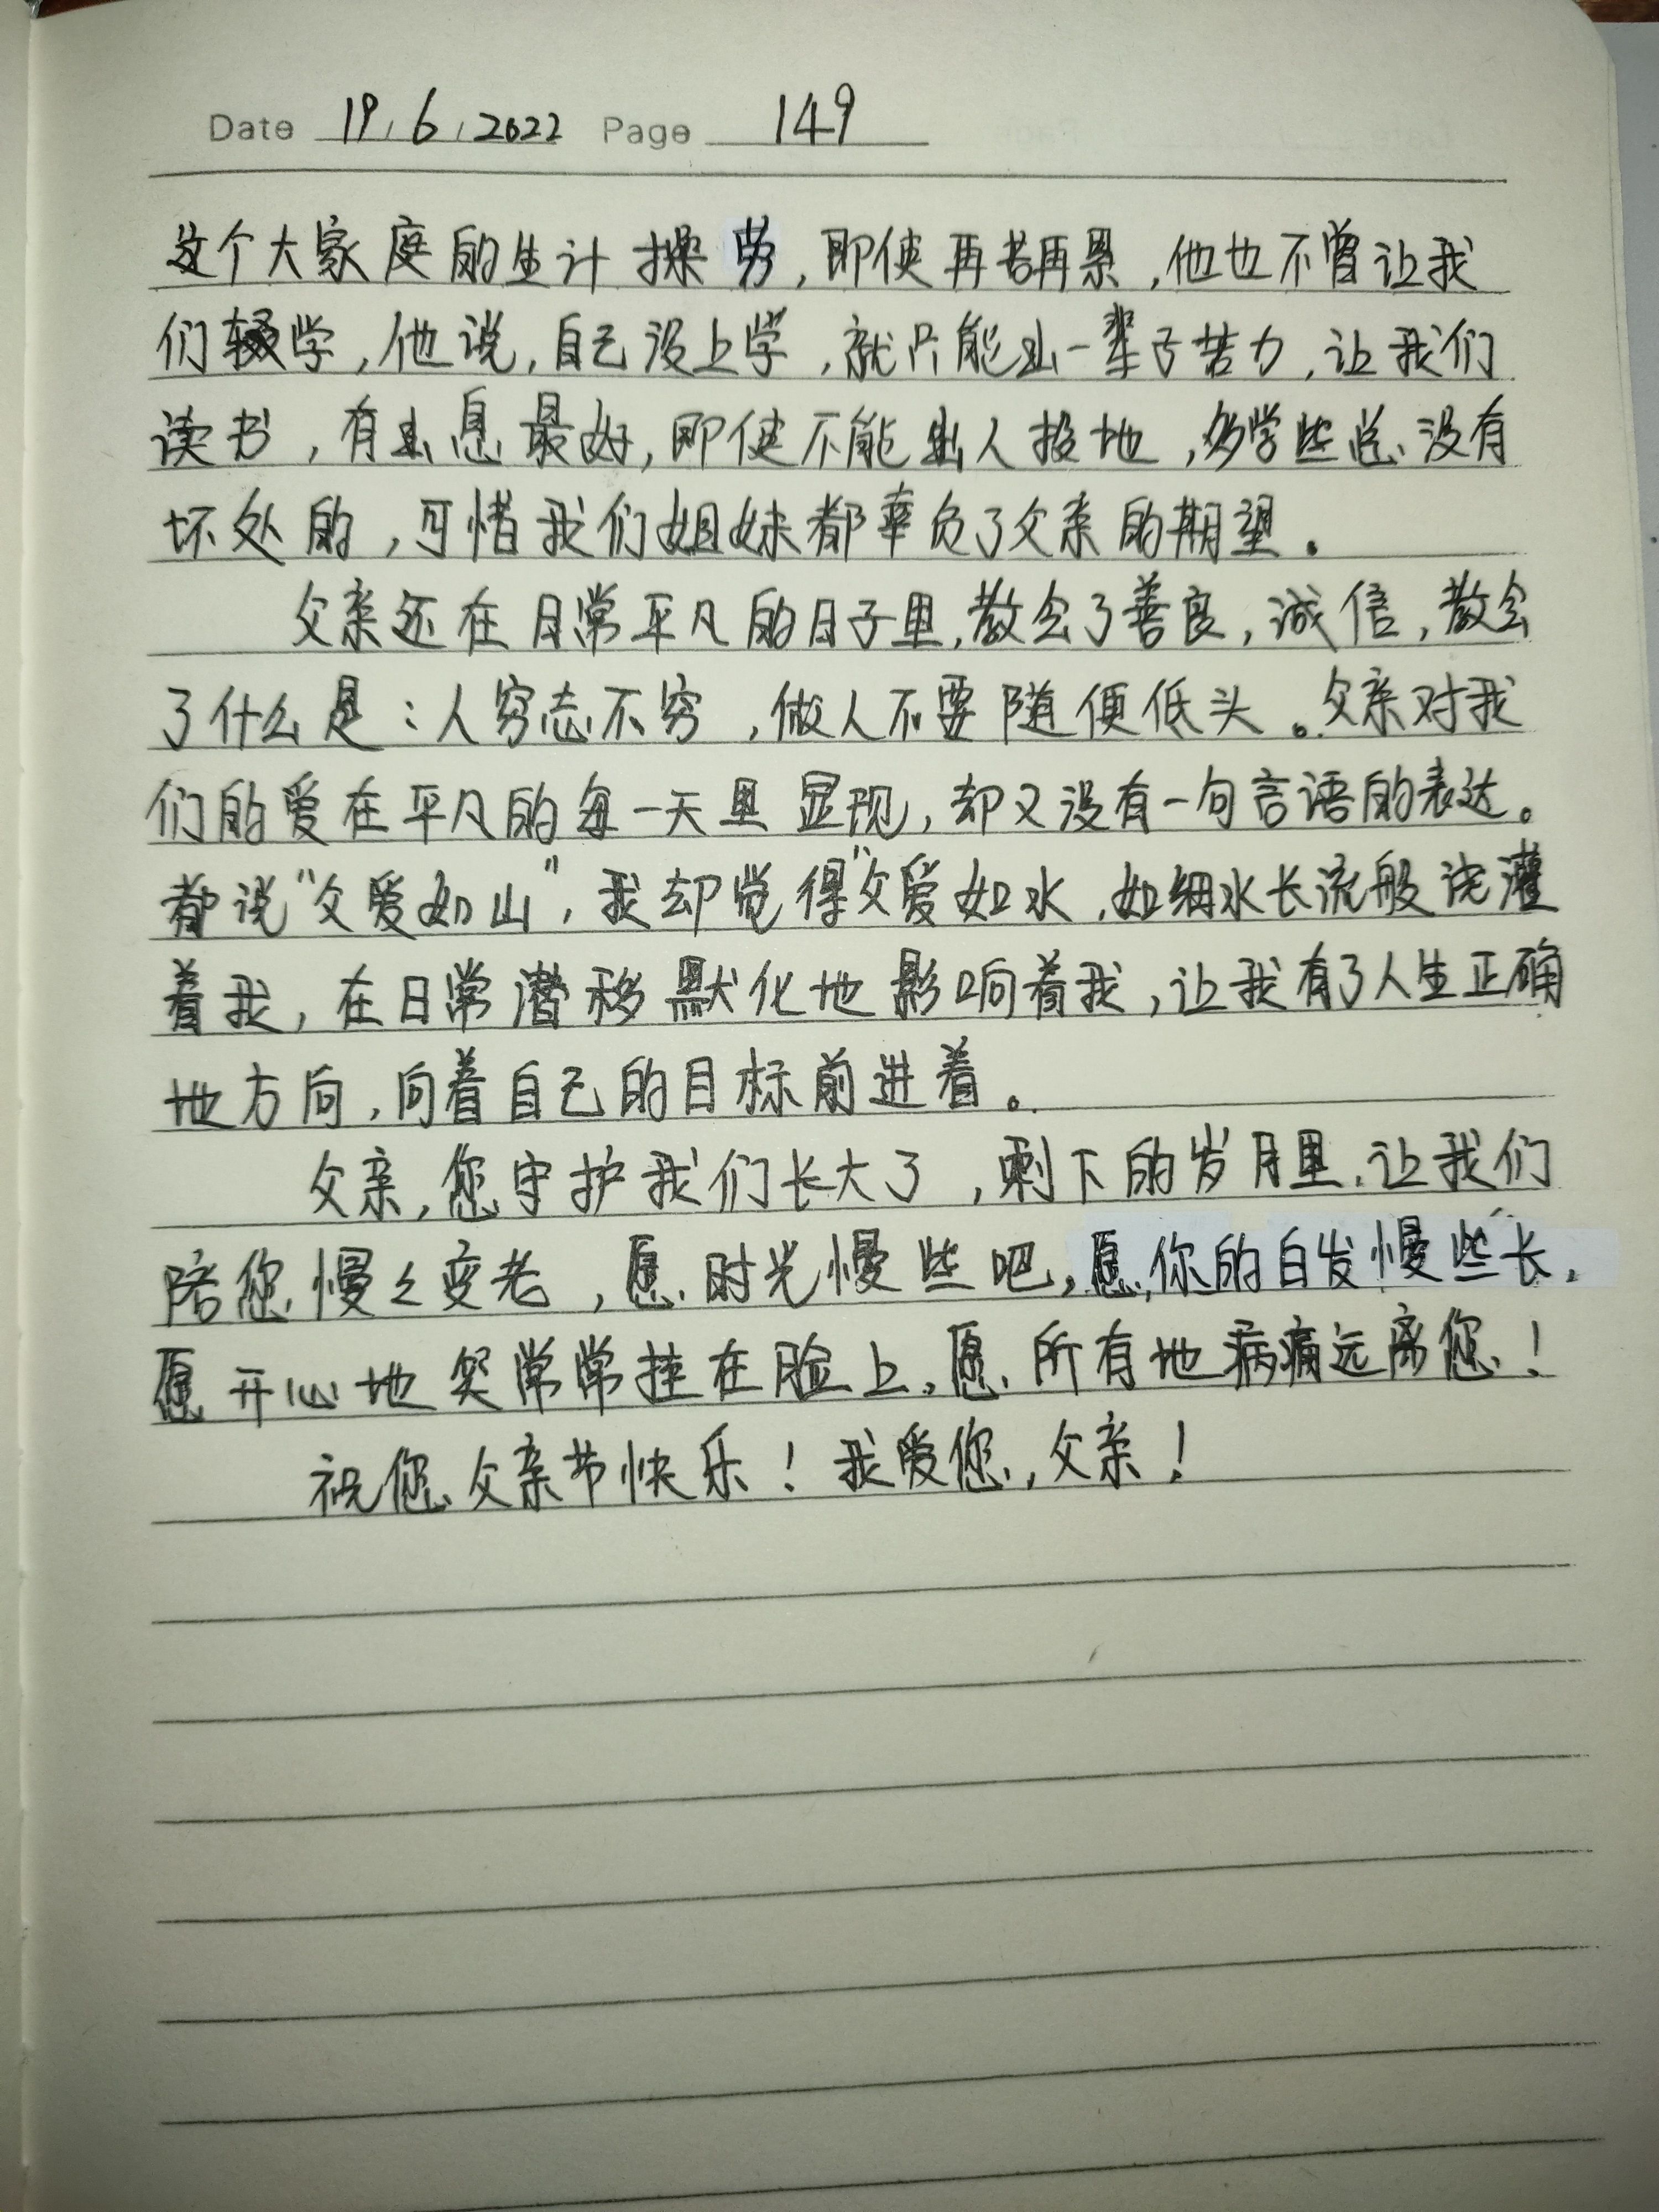 Date 19/6/2022 Page 149
这个大家庭的生计操劳，即使再苦再累，他也不曾让我
们辍学，他说，自己没上学，就只能出一辈子苦力，让我们
读书，有出息最好，即使不能出人投地，多学些总没有
坏处的，可惜我们姐妹都辜负了父亲的期望。
父亲还在日常平凡的日子里，教会了善良，诚信，教会
了什么是：人穷志不穷，做人不要随便低头。父亲对我
们的爱在平凡的每一天里显现，却又没有一句言语的表达。
都说“父爱如山”，我却觉得“父爱如水，如细水长流般浇灌
着我，在日常潜移默化地影响着我，让我有了人生正确
地方向，向着自己的目标前进着。
父亲，您守护我们长大了，剩下的岁月里，让我们
陪您慢々变老，愿时光慢些吧，愿你的白发慢些长，
愿开心地笑常常挂在脸上，愿所有地病痛远离您！
祝您父亲节快乐！我爱您，父亲！